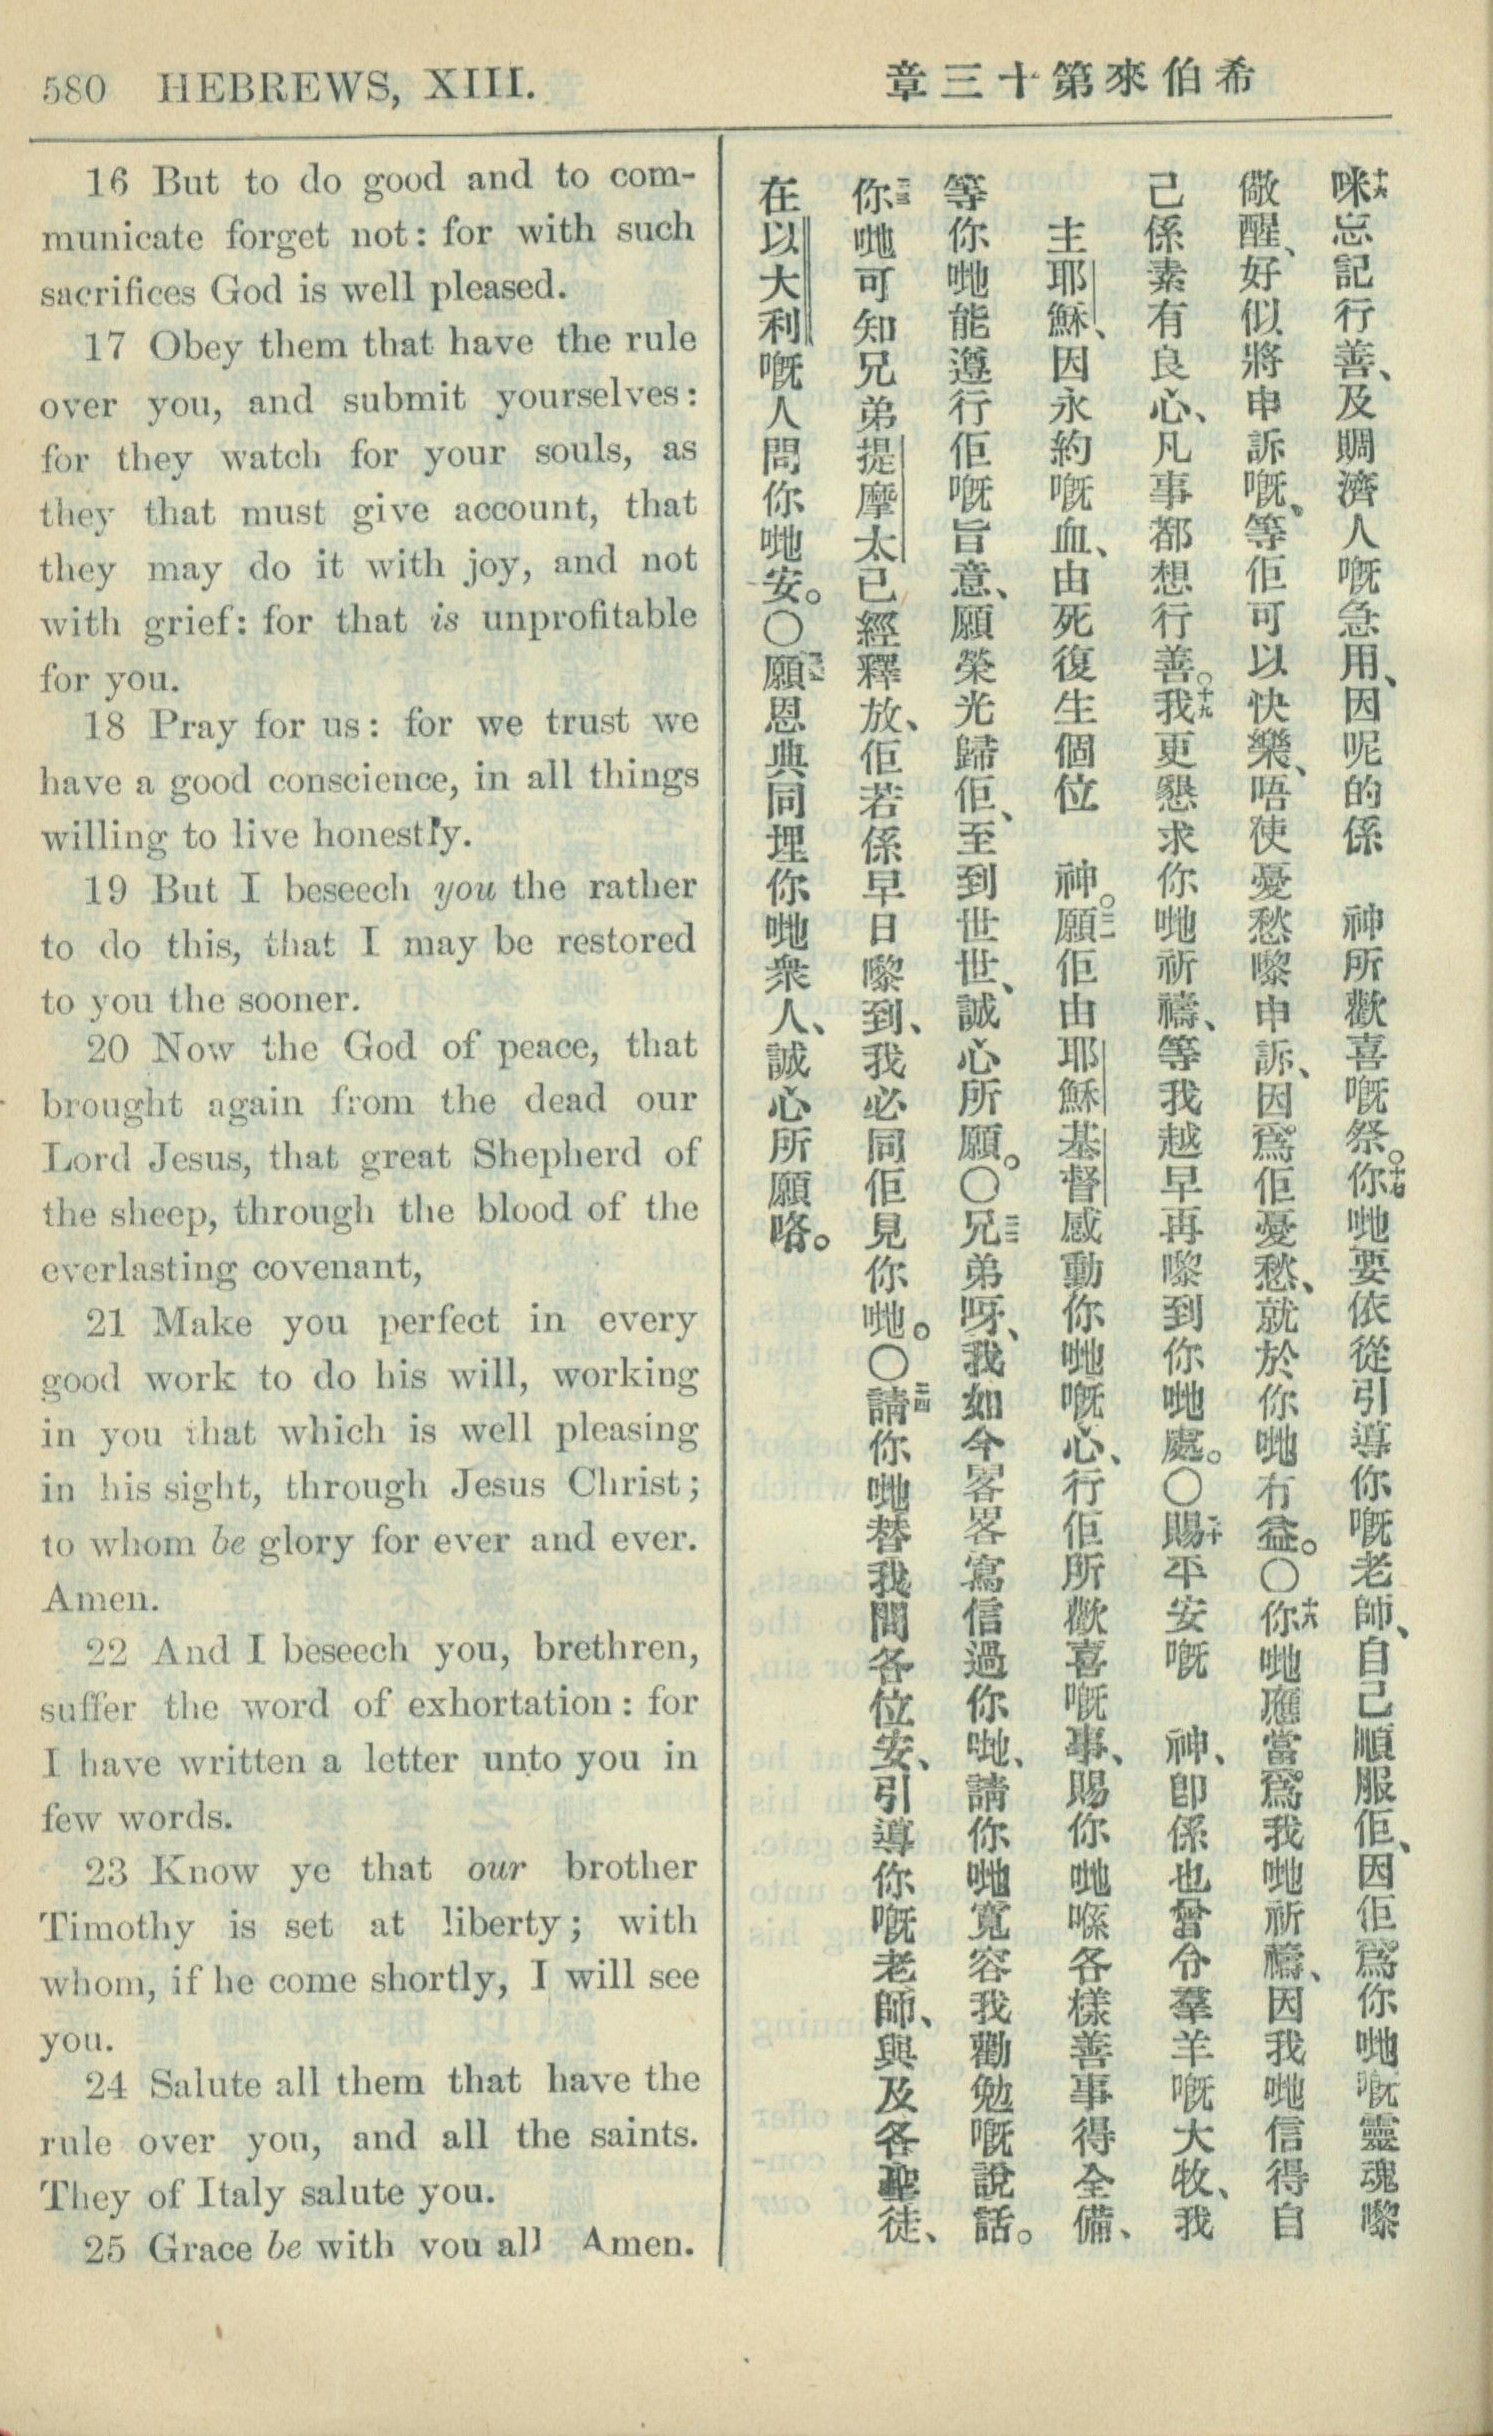 580 HEBREWS, XIII.
希伯來第十三章
16 But to do good and to com-
municate forget not: for with such
sacrifices God is well pleased.
17 Obey them that have the rule
over you, and submit yourselves:
for they watch for your souls, as
they that must give account, that
they may do it with joy, and not
with grief: for that is unprofitable
for you.
18 Pray for us: for we trust we
have a good conscience, in all things
willing to live honestly.
19 But I beseech you the rather
to do this, that I may be restored
to you the sooner.
20 Now the God of peace, that
brought again from the dead our
Lord Jesus, that great Shepherd of
the sheep, through the blood of the
everlasting covenant,
21 Make you perfect in every
good work to do his will, working
in you that which is well pleasing
in his sight, through Jesus Christ;
to whom be glory for ever and ever.
Amen.
22 And I beseech you, brethren,
suffer the word of exhortation: for
I have written a letter unto you in
few words.
23 Know ye that our brother
Timothy is set at liberty; with
whom, if he come shortly, I will see
you.
24 Salute all them that have the
rule over you, and all the saints.
They of Italy salute you.
25 Grace be with you all Amen.
十六咪忘記行善、及賙濟人嘅急用、因呢的係 神所歡喜嘅祭。十七你哋要依從引導你嘅老師、自己順服佢、因佢爲你哋嘅靈魂嚟
儆醒、好似將申訴嘅、等佢可以快樂、唔使憂愁嚟申訴、因爲佢憂愁、就於你哋冇益。〇十八你哋應當爲我哋祈禱、因我哋信得自
己係素有良心、凡事都想行善。十九我更懇求你哋祈禱、等我越早再嚟到你哋處。〇二十賜平安嘅 神、卽係也曾令羣羊嘅大牧、我
主耶穌、因永約嘅血、由死復生個位 神。二一願佢由耶穌基督感動你哋嘅心、行佢所歡喜嘅事、賜你哋喺各樣善事得全備、
等你哋能遵行佢嘅旨意、願榮光歸佢、至到世世、誠心所願。〇二二兄弟呀、我如今畧畧寫信過你哋、請你哋寬容我勸勉嘅說話。
二三你哋可知兄弟提摩太已經釋放、佢若係早日嚟到、我必同佢見你哋。〇二四請你哋替我問各位安、引導你嘅老師、與及各聖徒、
在以大利嘅人問你哋安。〇二五願恩典同埋你哋衆人、誠心所願咯。